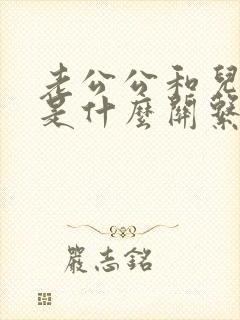 老公公和兒
是什麼關繫
嚴志銘